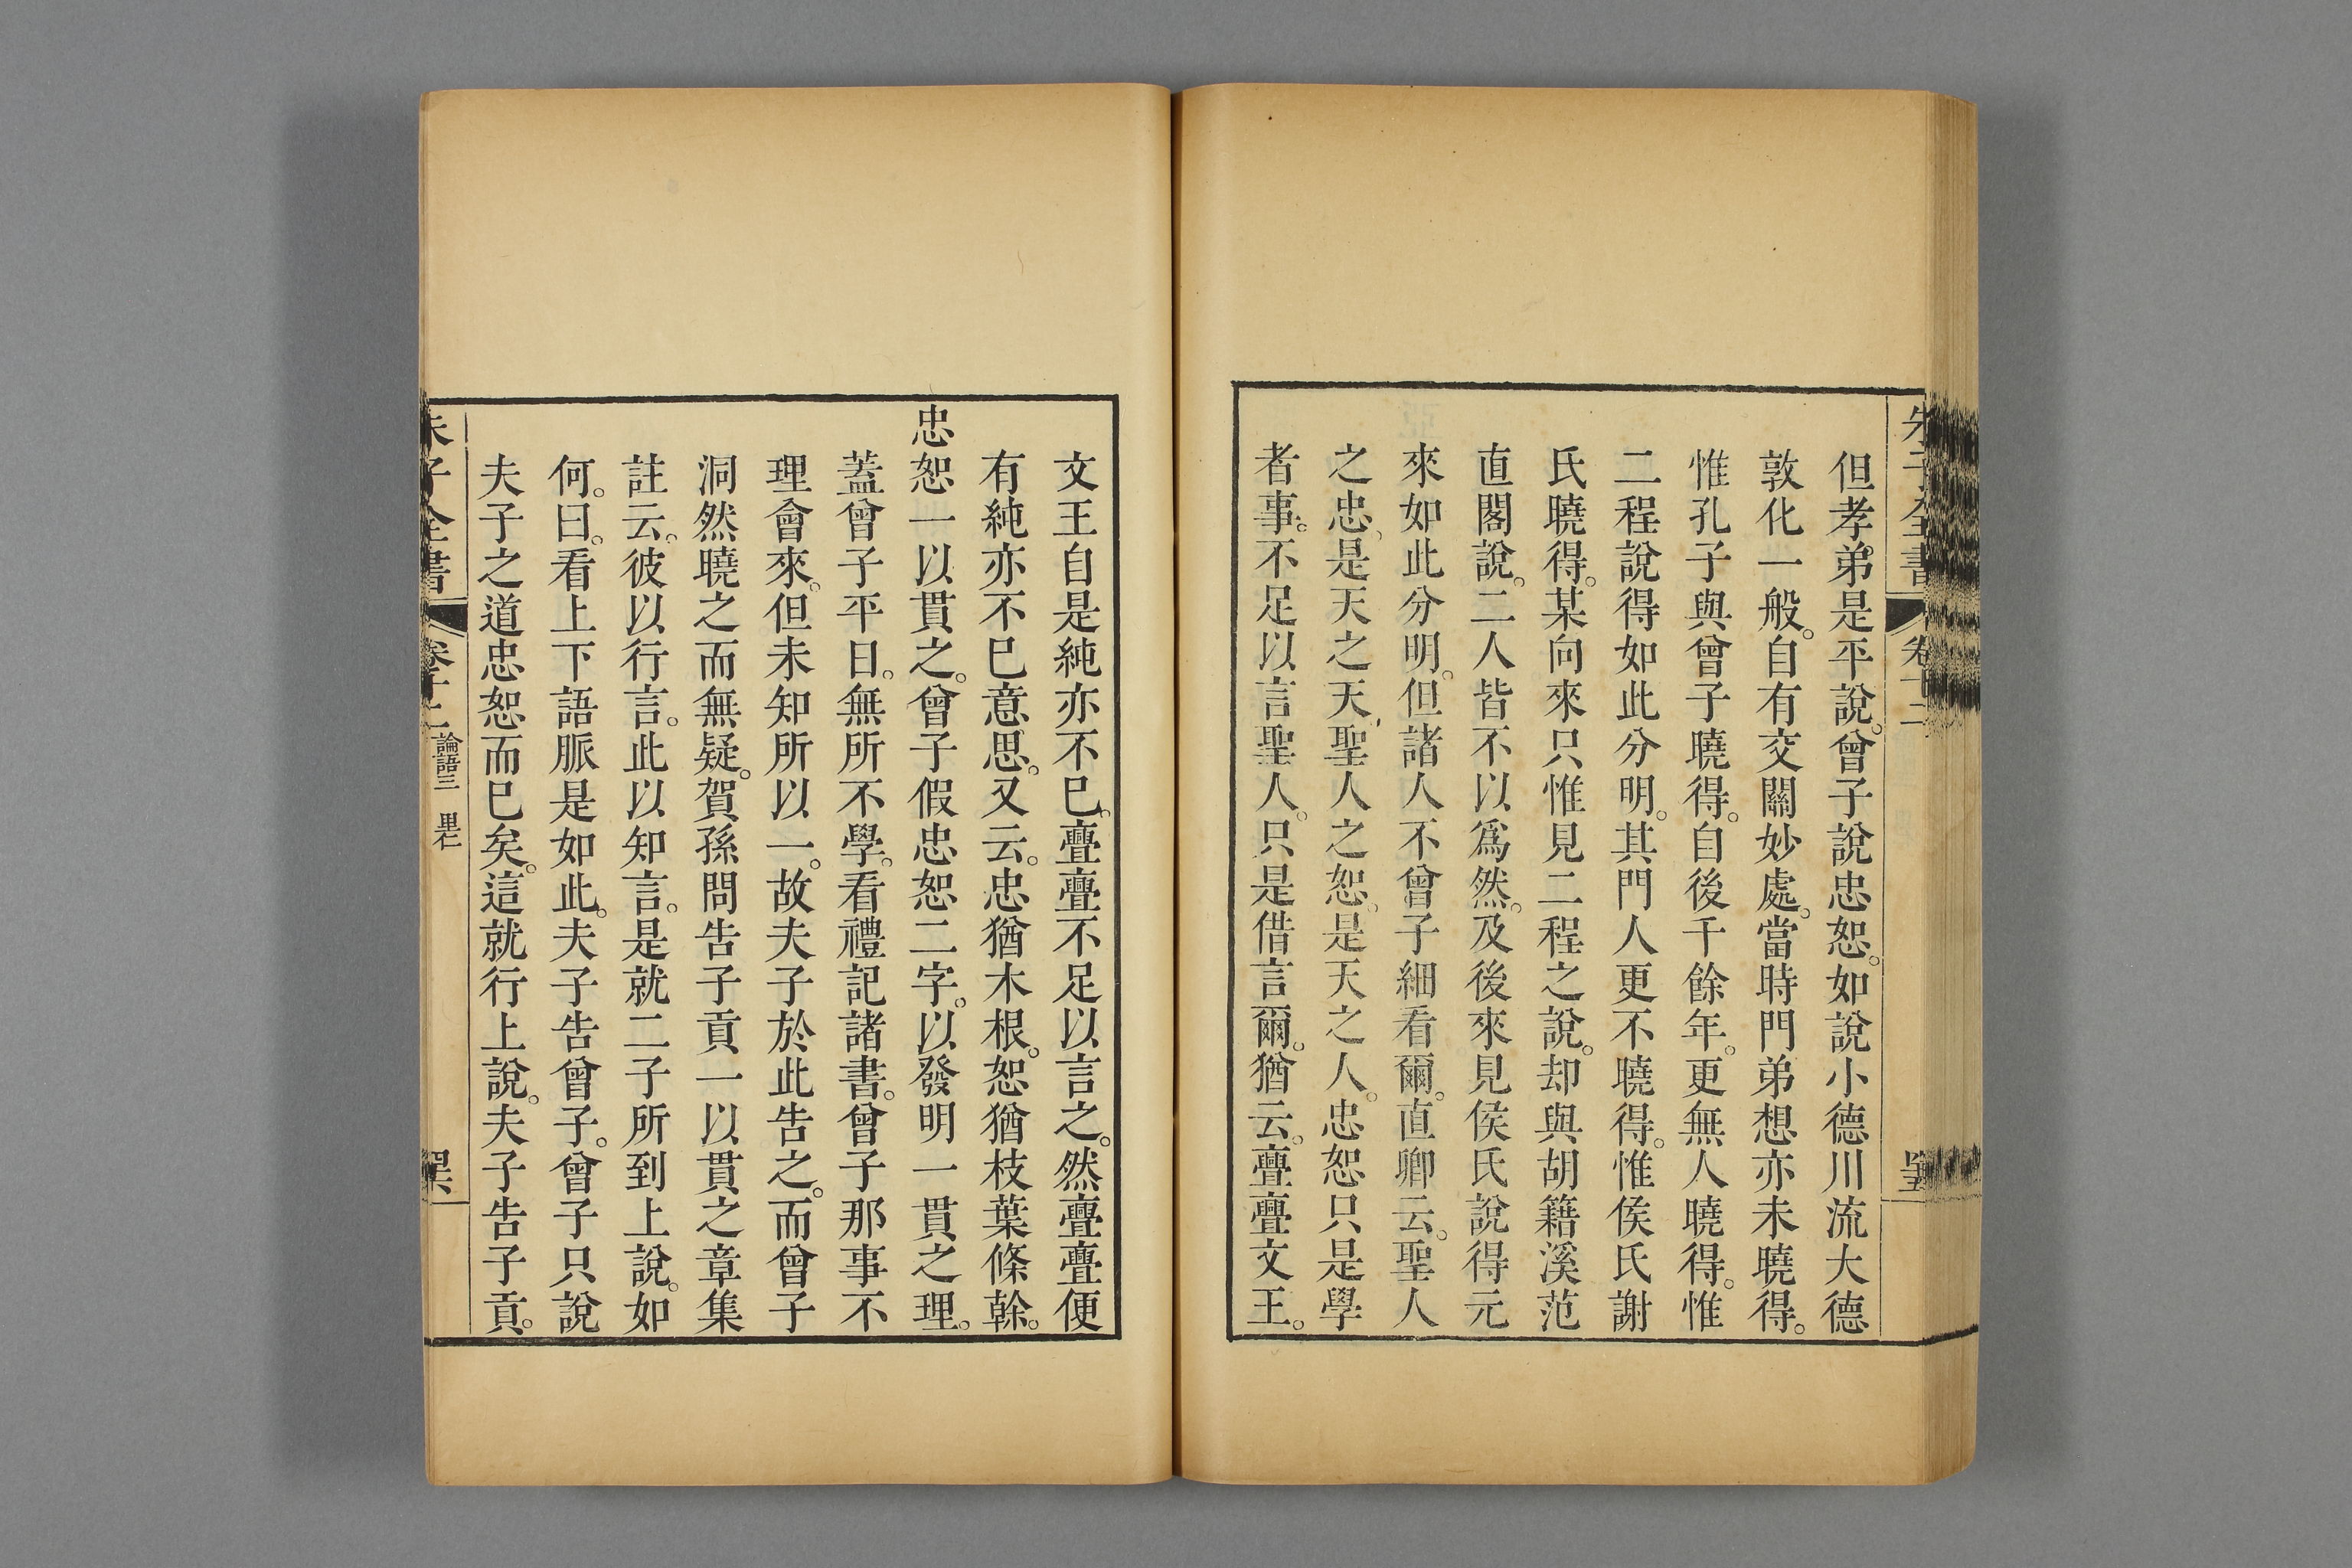 朱子全書 卷十二
但孝弟是平說。曾子說忠恕。如說小德川流大德
敦化一般。自有交關妙處。當時門弟想亦未曉得。
惟孔子與曾子曉得。自後千餘年。更無人曉得。惟
二程說得如此分明。其門人更不曉得。惟侯氏謝
氏曉得。某向來只惟見二程之說。却與胡籍溪范
直閣說。二人皆不以爲然。及後來見侯氏說得元
來如此分明。但諸人不曾子細看爾。直卿云。聖人
之忠、是天之天、聖人之恕。是天之人。忠恕只是學
者事。不足以言聖人。只是借言爾。猶云。亹亹文王。
文王自是純亦不已。亹亹不足以言之。然亹亹便
有純亦不已意思。又云。忠猶木根。恕猶枝葉條榦。
忠恕一以貫之。曾子假忠恕二字。以發明一貫之理。
蓋曾子平日。無所不學。看禮記諸書。曾子那事不
理會來。但未知所以一。故夫子於此告之。而曾子
洞然曉之而無疑。賀孫問告子貢一以貫之章集
註云。彼以行言。此以知言。是就二子所到上說。如
何。曰。看上下語脈是如此。夫子告曾子。曾子只說
夫子之道忠恕而已矣。這就行上說。夫子告子貢。
朱子全書 卷十二 論語三 里仁